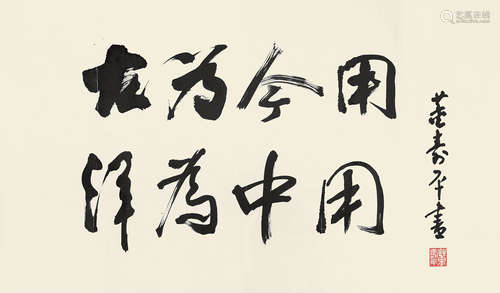 古为今用
洋為中用
董寿平書